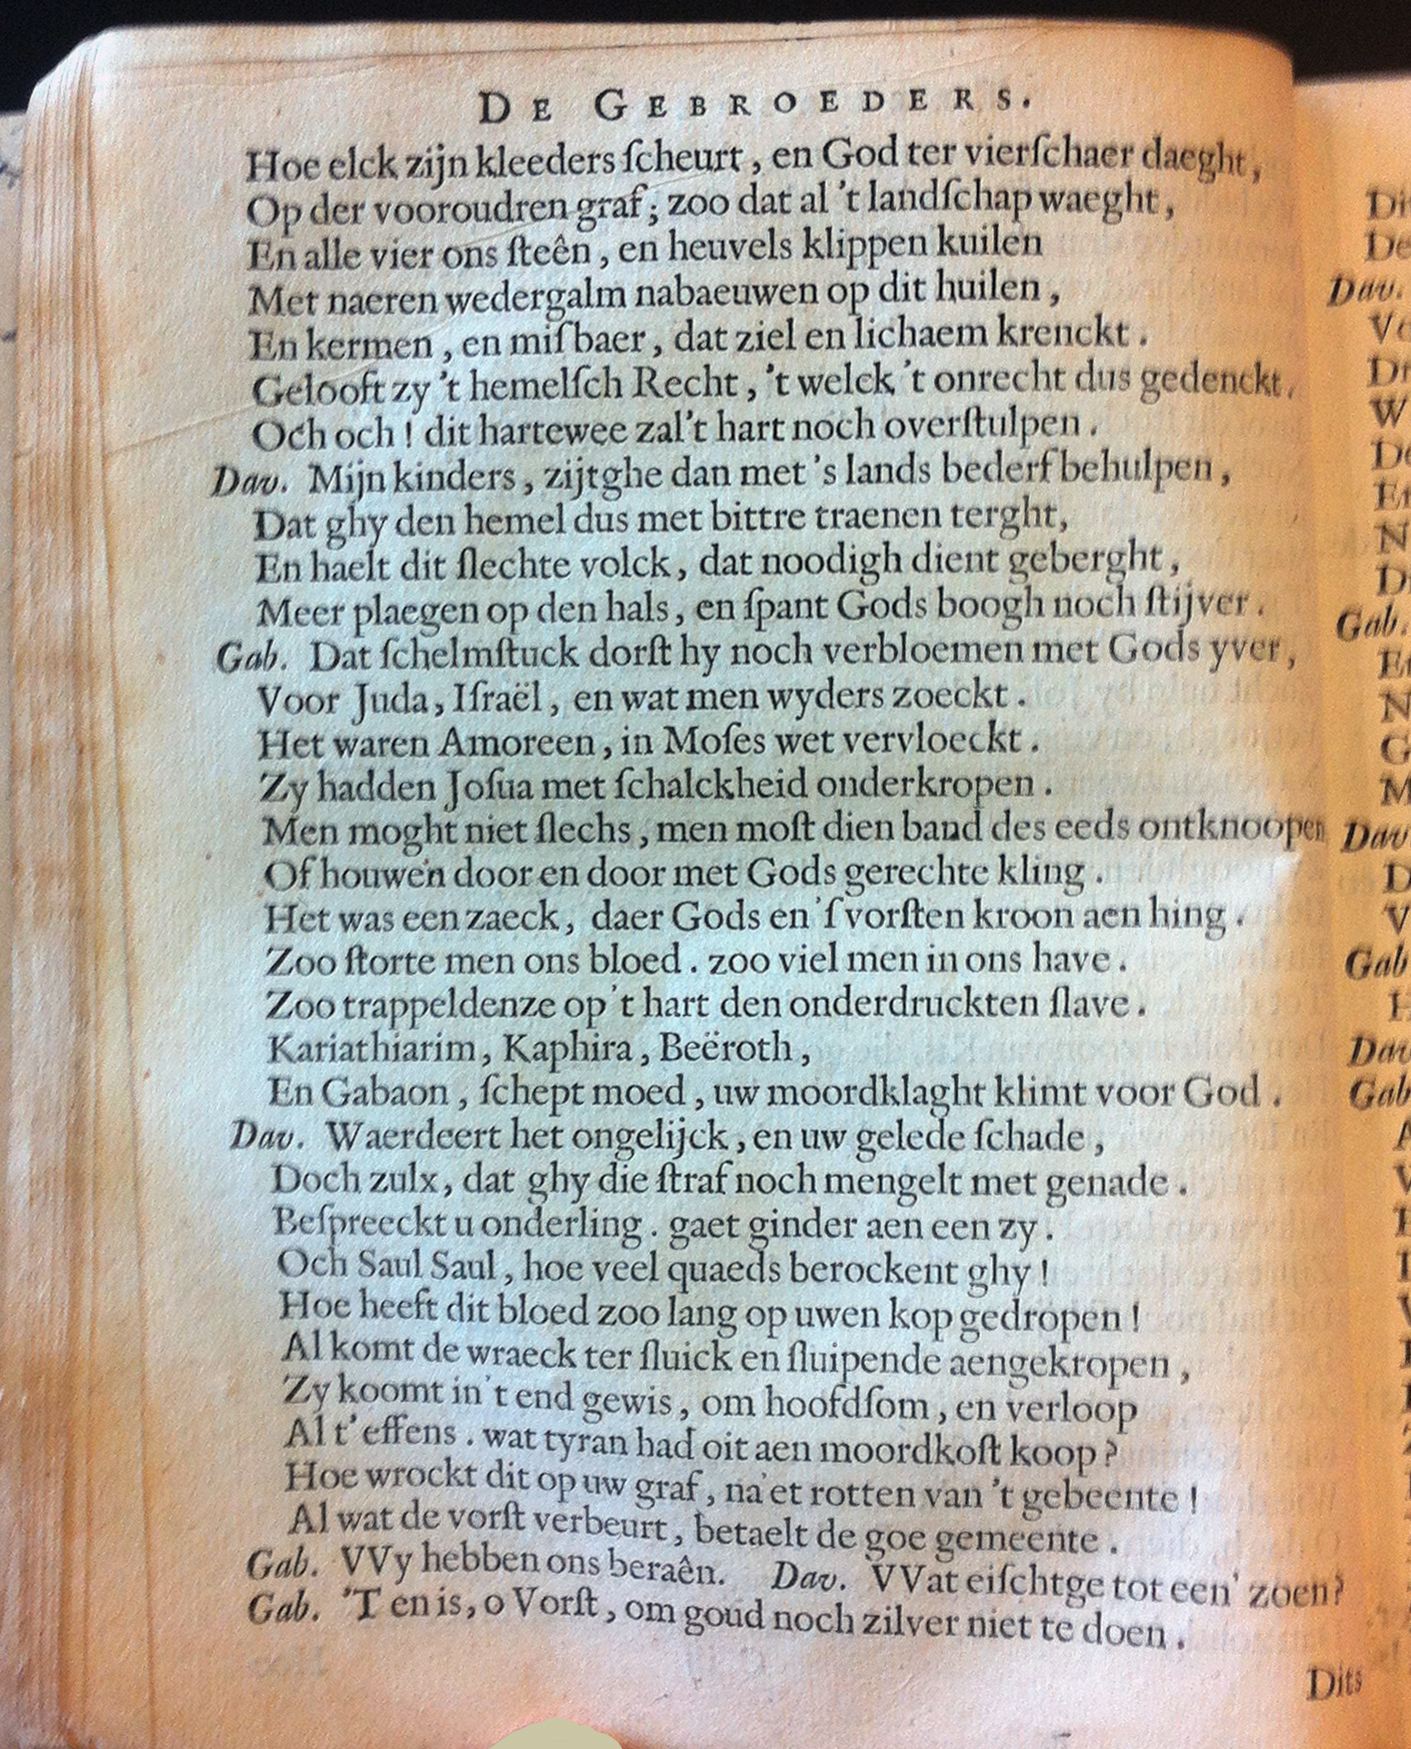 DE GEBROEDERS.
Hoe elck zijn kleeders ſcheurt, en God ter vierſchaer daeght,
Op der vooroudren graf; zoo dat al 't landſchap waeght,
En alle vier ons ſteên, en heuvels klippen kuilen
Met naeren wedergalm nabaeuwen op dit huilen,
En kermen, en miſbaer, dat ziel en lichaem krenckt.
Gelooft zy 't hemelſch Recht, 't welck 't onrecht dus gedenckt.
Och och! dit hartewee zal't hart noch overſtulpen.
Dav. Mijn kinders, zijtghe dan met 's lands bederf behulpen,
Dat ghy den hemel dus met bittre traenen terght,
En haelt dit ſlechte volck, dat noodigh dient geberght,
Meer plaegen op den hals, en ſpant Gods boogh noch ſtijver.
Gab. Dat ſchelmſtuck dorſt hy noch verbloemen met Gods yver,
Voor Juda, Iſraël, en wat men wyders zoeckt.
Het waren Amoreen, in Moſes wet vervloeckt.
Zy hadden Joſua met ſchalckheid onderkropen.
Men moght niet ſlechs, men moſt dien band des eeds ontknoopen
Of houwen door en door met Gods gerechte kling.
Het was een zaeck, daer Gods en 'ſ vorſten kroon aen hing.
Zoo ſtorte men ons bloed. zoo viel men in ons have.
Zoo trappeldenze op 't hart den onderdruckten ſlave.
Kariathiarim, Kaphira, Beëroth,
En Gabaon, ſchept moed, uw moordklaght klimt voor God.
Dav. Waerdeert het ongelijck, en uw gelede ſchade,
Doch zulx, dat ghy die ſtraf noch mengelt met genade.
Beſpreeckt u onderling. gaet ginder aen een zy.
Och Saul Saul, hoe veel quaeds berockent ghy!
Hoe heeft dit bloed zoo lang op uwen kop gedropen!
Al komt de wraeck ter ſluick en ſluipende aengekropen,
Zy koomt in 't end gewis, om hoofdſom, en verloop
Al t' effens. wat tyran had oit aen moordkoſt koop?
Hoe wrockt dit op uw graf, na'et rotten van 't gebeente!
Al wat de vorſt verbeurt, betaelt de goe gemeente.
Gab. VVy hebben ons beraên. Dav. VVat eiſchtge tot een' zoen?
Gab. 'T en is, o Vorſt, om goud noch zilver niet te doen.
Dits
Di
De
Dav.
Vo
W
De
N
Gab.
N
G
M
Dav
D
V
Gab
H
Dav
Gab